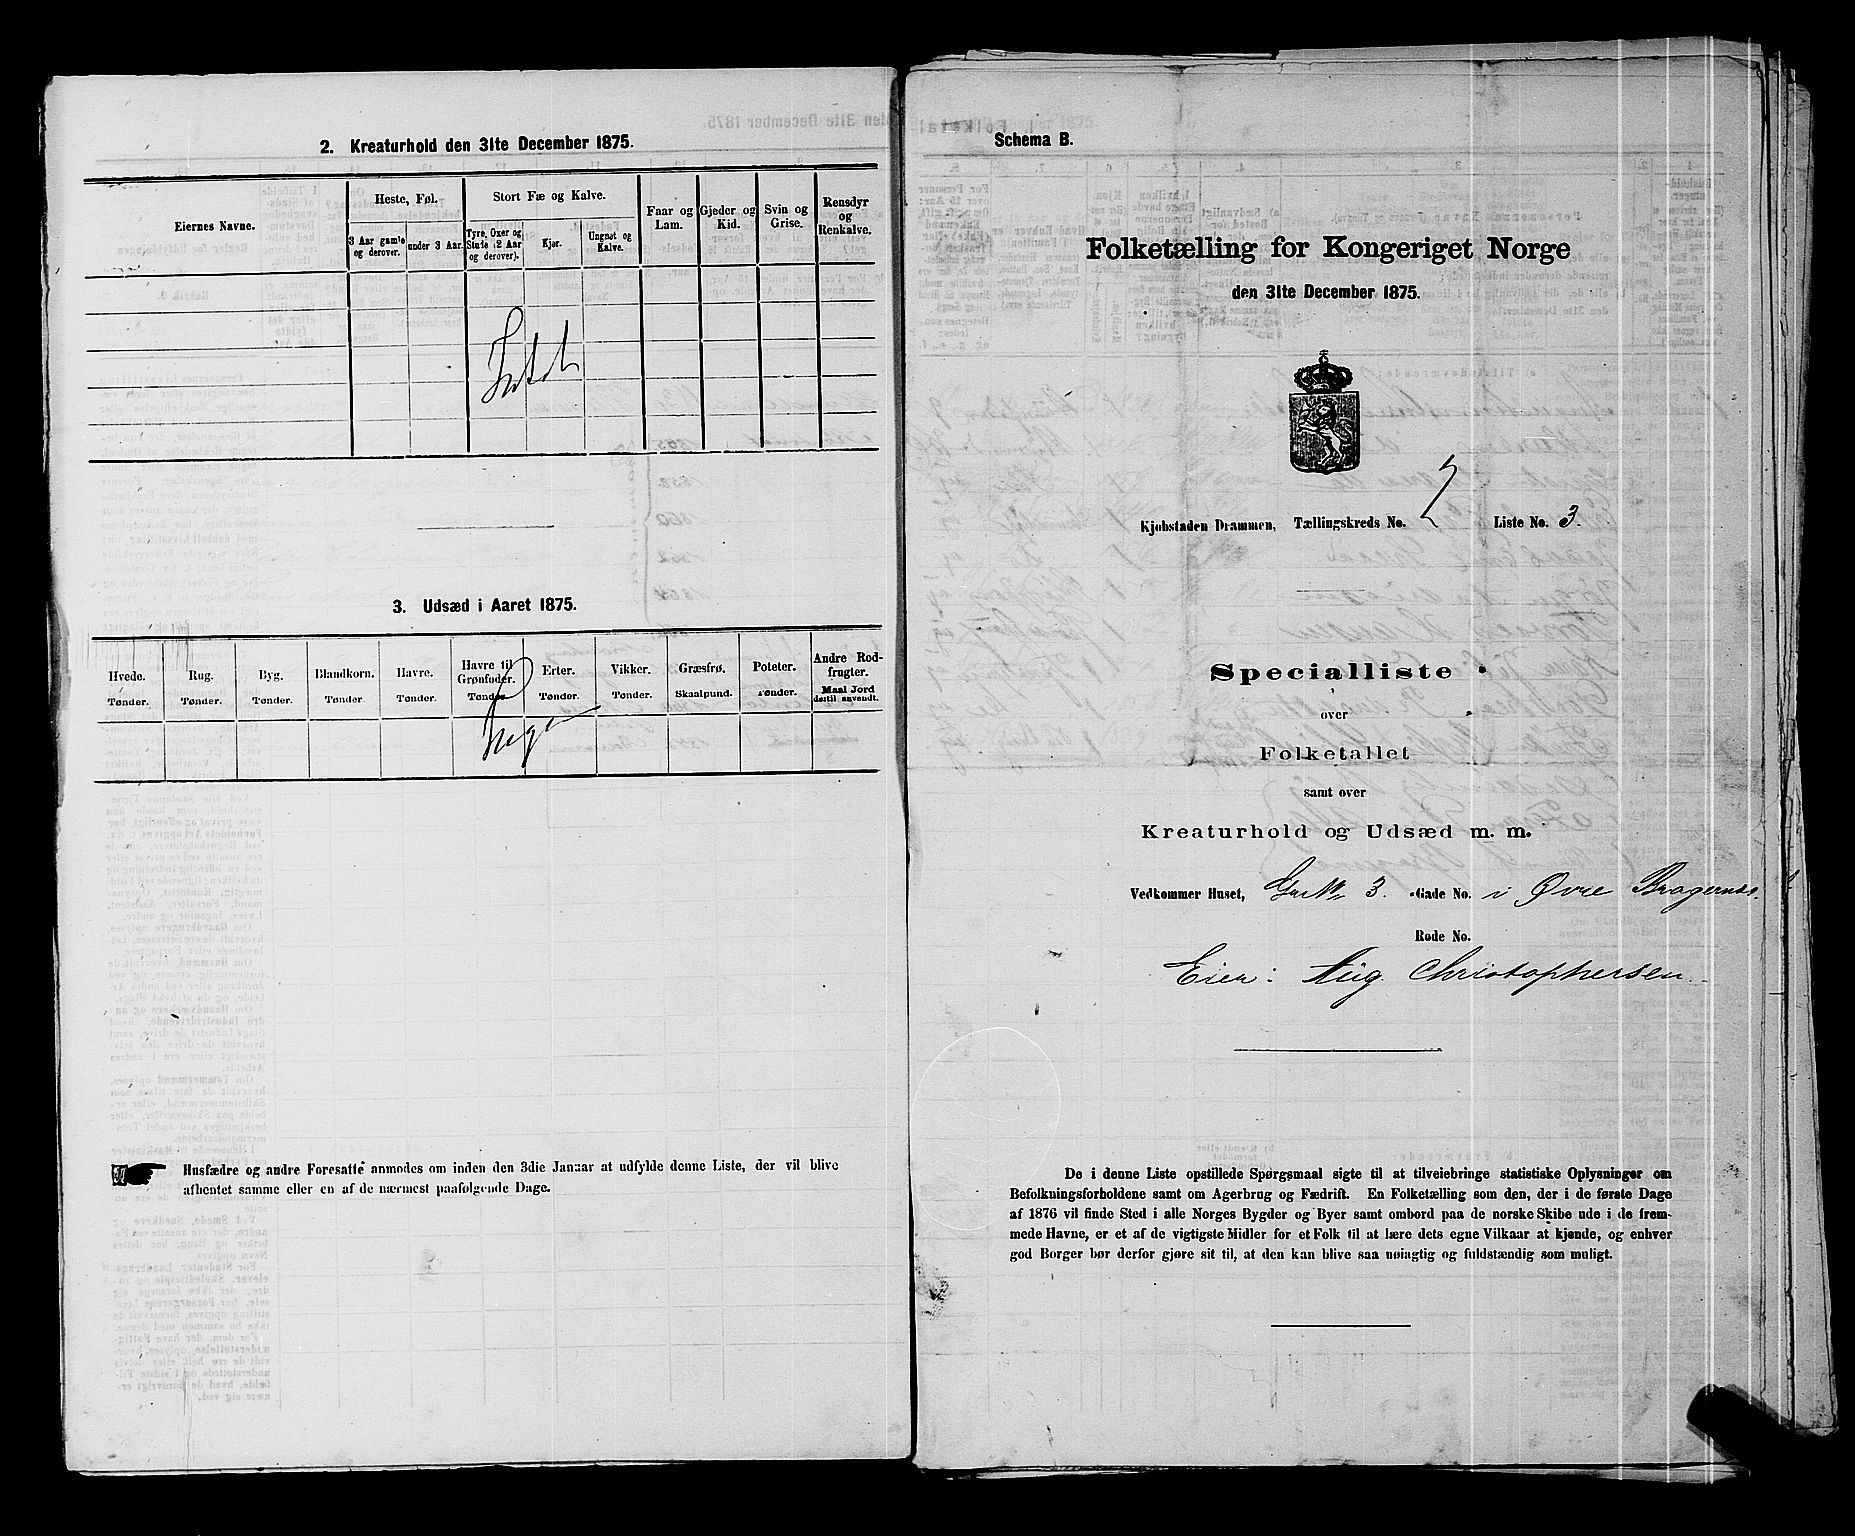 2. Kreaturhold den 31te December 1875.
Eiernes Navne.
Heste, Føl.
Stort Fæ og Kalve.
Faar og Lam.
Gjeder og Kid.
Svin og Grise.
Rensdyr og Renkalve.
3 Aar gamle og derover.
under 3 Aar.
Tyre, Oxer og Stude (2 Aar og derover).
Kjør.
Ungnøt og Kalve.
Intet
3. Udsæd i Aaret 1875.
Hvede. Rug. Byg. Blandkorn. Havre. Havre til Grønfoder. Erter. Vikker. Græsfrø. Poteter. Andre Rodfrugter.
Tønder. Tønder. Tønder. Tønder. Tønder. Tønder. Tønder. Tønder. Skaalpund. Tønder. Maal Jord dertil anvendt.
Husfædre og andre Foresatte anmodes om inden den 3die Januar at udfylde denne Liste, der vil blive
afhentet samme eller en af de nærmest paafølgende Dage.
Schema B.
Folketælling for Kongeriget Norge
den 31te December 1875.
Kjøbstaden Drammen, Tællingskreds No. 2 Liste No. 3.
Specialliste
over
Folketallet
samt over
Kreaturhold og Udsæd m. m.
Vedkommer Huset, 3. Gade No. i Øvre Bragernes.
Rode No.
Eier: Aug. Christophersen
De i denne Liste opstillede Spørgsmaal sigte til at tilveiebringe statistiske Oplysninger om
Befolkningsforholdene samt om Agerbrug og Fædrift. En Folketælling som den, der i de første Dage
af 1876 vil finde Sted i alle Norges Bygder og Byer samt ombord paa de norske Skibe ude i de frem-
mede Havne, er et af de vigtigste Midler for et Folk til at lære dets egne Vilkaar at kjende, og enhver
god Borger bør derfor gjøre sit til, at den kan blive saa nøiagtig og fuldstændig som muligt.